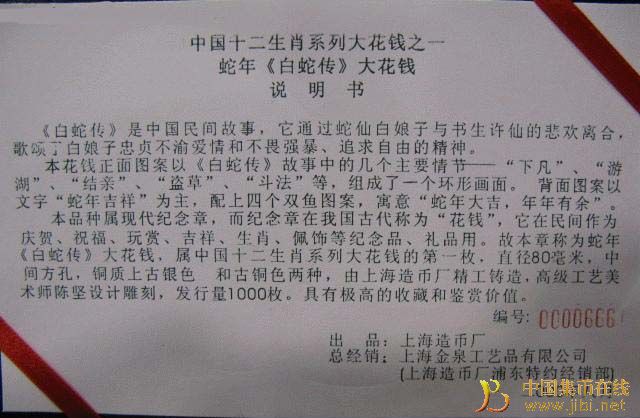 中国十二生肖系列大花钱之一
蛇年《白蛇传》大花钱
说 明 书
《白蛇传》是中国民间故事,它通过蛇仙白娘子与书生许仙的悲欢离合,
歌颂了白娘子忠贞不渝爱情和不畏强暴、追求自由的精神。
本花钱正面图案以《白蛇传》故事中的几个主要情节——“下凡”、“游
湖”、“结亲”、“盗草”、“斗法”等,组成了一个环形画面。 背面图案以
文字“蛇年吉祥”为主,配上四个双鱼图案,寓意“蛇年大吉,年年有余”。
本品种属现代纪念章,而纪念章在我国古代称为“花钱”,它在民间作为
庆贺、祝福、玩赏、吉祥、生肖、佩饰等纪念品、礼品用。故本章称为蛇年
《白蛇传》大花钱,属中国十二生肖系列大花钱的第一枚,直径80毫米,中
间方孔,铜质上古银色 和古铜色两种,由上海造币厂精工铸造,高级工艺美
术师陈坚设计雕刻,发行量1000枚。具有极高的收藏和鉴赏价值。
编号: 0000666
出 品: 上海造币厂
总经销: 上海金泉工艺品有限公司
(上海造币厂浦东特约经销部)
中国集币在线
www.jibi.net